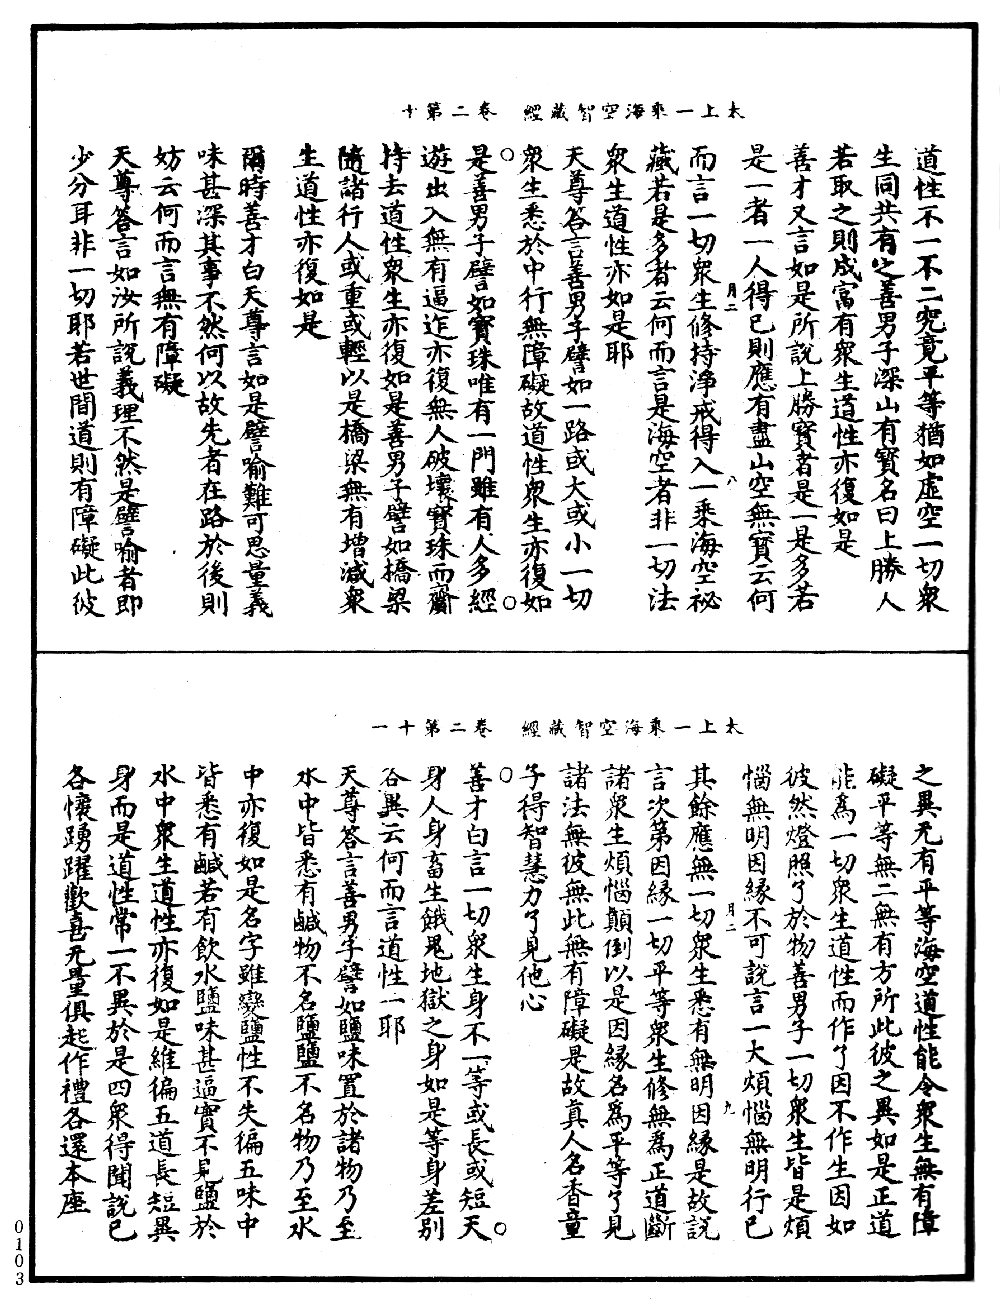 太上一乘海空智藏經　卷二第十
道性不一不二究竟平等猶如虛空一切衆
生同共有之善男子深山有寳名曰上勝人
若取之則成富有衆生道性亦復如是
善才又言如是所說上勝寳者是一是多若
是一者一人得已則應有盡山空無寳云何
月二
八
而言一切衆生修持淨戒得入一乘海空祕
藏若是多者云何而言是海空者非一切法
衆生道性亦如是耶
天尊答言善男子譬如一路或大或小一切
衆生悉於中行無障礙故道性衆生亦復如
是善男子譬如寳珠唯有一門雖有人多經
遊出入無有逼迮亦復無人破壞寳珠而齎
持去道性衆生亦復如是善男子譬如橋梁
隨諸行人或重或輕以是橋梁無有增減衆
生道性亦復如是
爾時善才白天尊言如是譬喻難可思量義
味甚深其事不然何以故先者在路於後則
妨云何而言無有障礙
天尊答言如汝所說義理不然是譬喻者即
少分耳非一切耶若世間道則有障礙此彼
太上一乘海空智藏經　卷二第十一
之異无有平等海空道性能令衆生無有障
礙平等無二無有方所此彼之異如是正道
能爲一切衆生道性而作了因不作生因如
彼然燈照了於物善男子一切衆生皆是煩
惱無明因緣不可說言一大煩惱無明行已
月二
九
其餘應無一切衆生悉有無明因緣是故說
言次第因緣一切平等衆生修無爲正道斷
諸衆生煩惱顛倒以是因緣名爲平等了見
諸法無彼無此無有障礙是故真人名香童
子得智慧力了見他心
善才白言一切衆生身不一等或長或短天
身人身畜生餓鬼地獄之身如是等身差別
各異云何而言道性一耶
天尊答言善男子譬如鹽味置於諸物乃至
水中皆悉有鹹物不名鹽鹽不名物乃至水
中亦復如是名字雖變鹽性不失徧五味中
皆悉有鹹若有飲水鹽味甚逼實不見鹽於
水中衆生道性亦復如是維徧五道長短異
身而是道性常一不異於是四衆得聞說已
各懷踴躍歡喜无量俱起作禮各還本座
0103